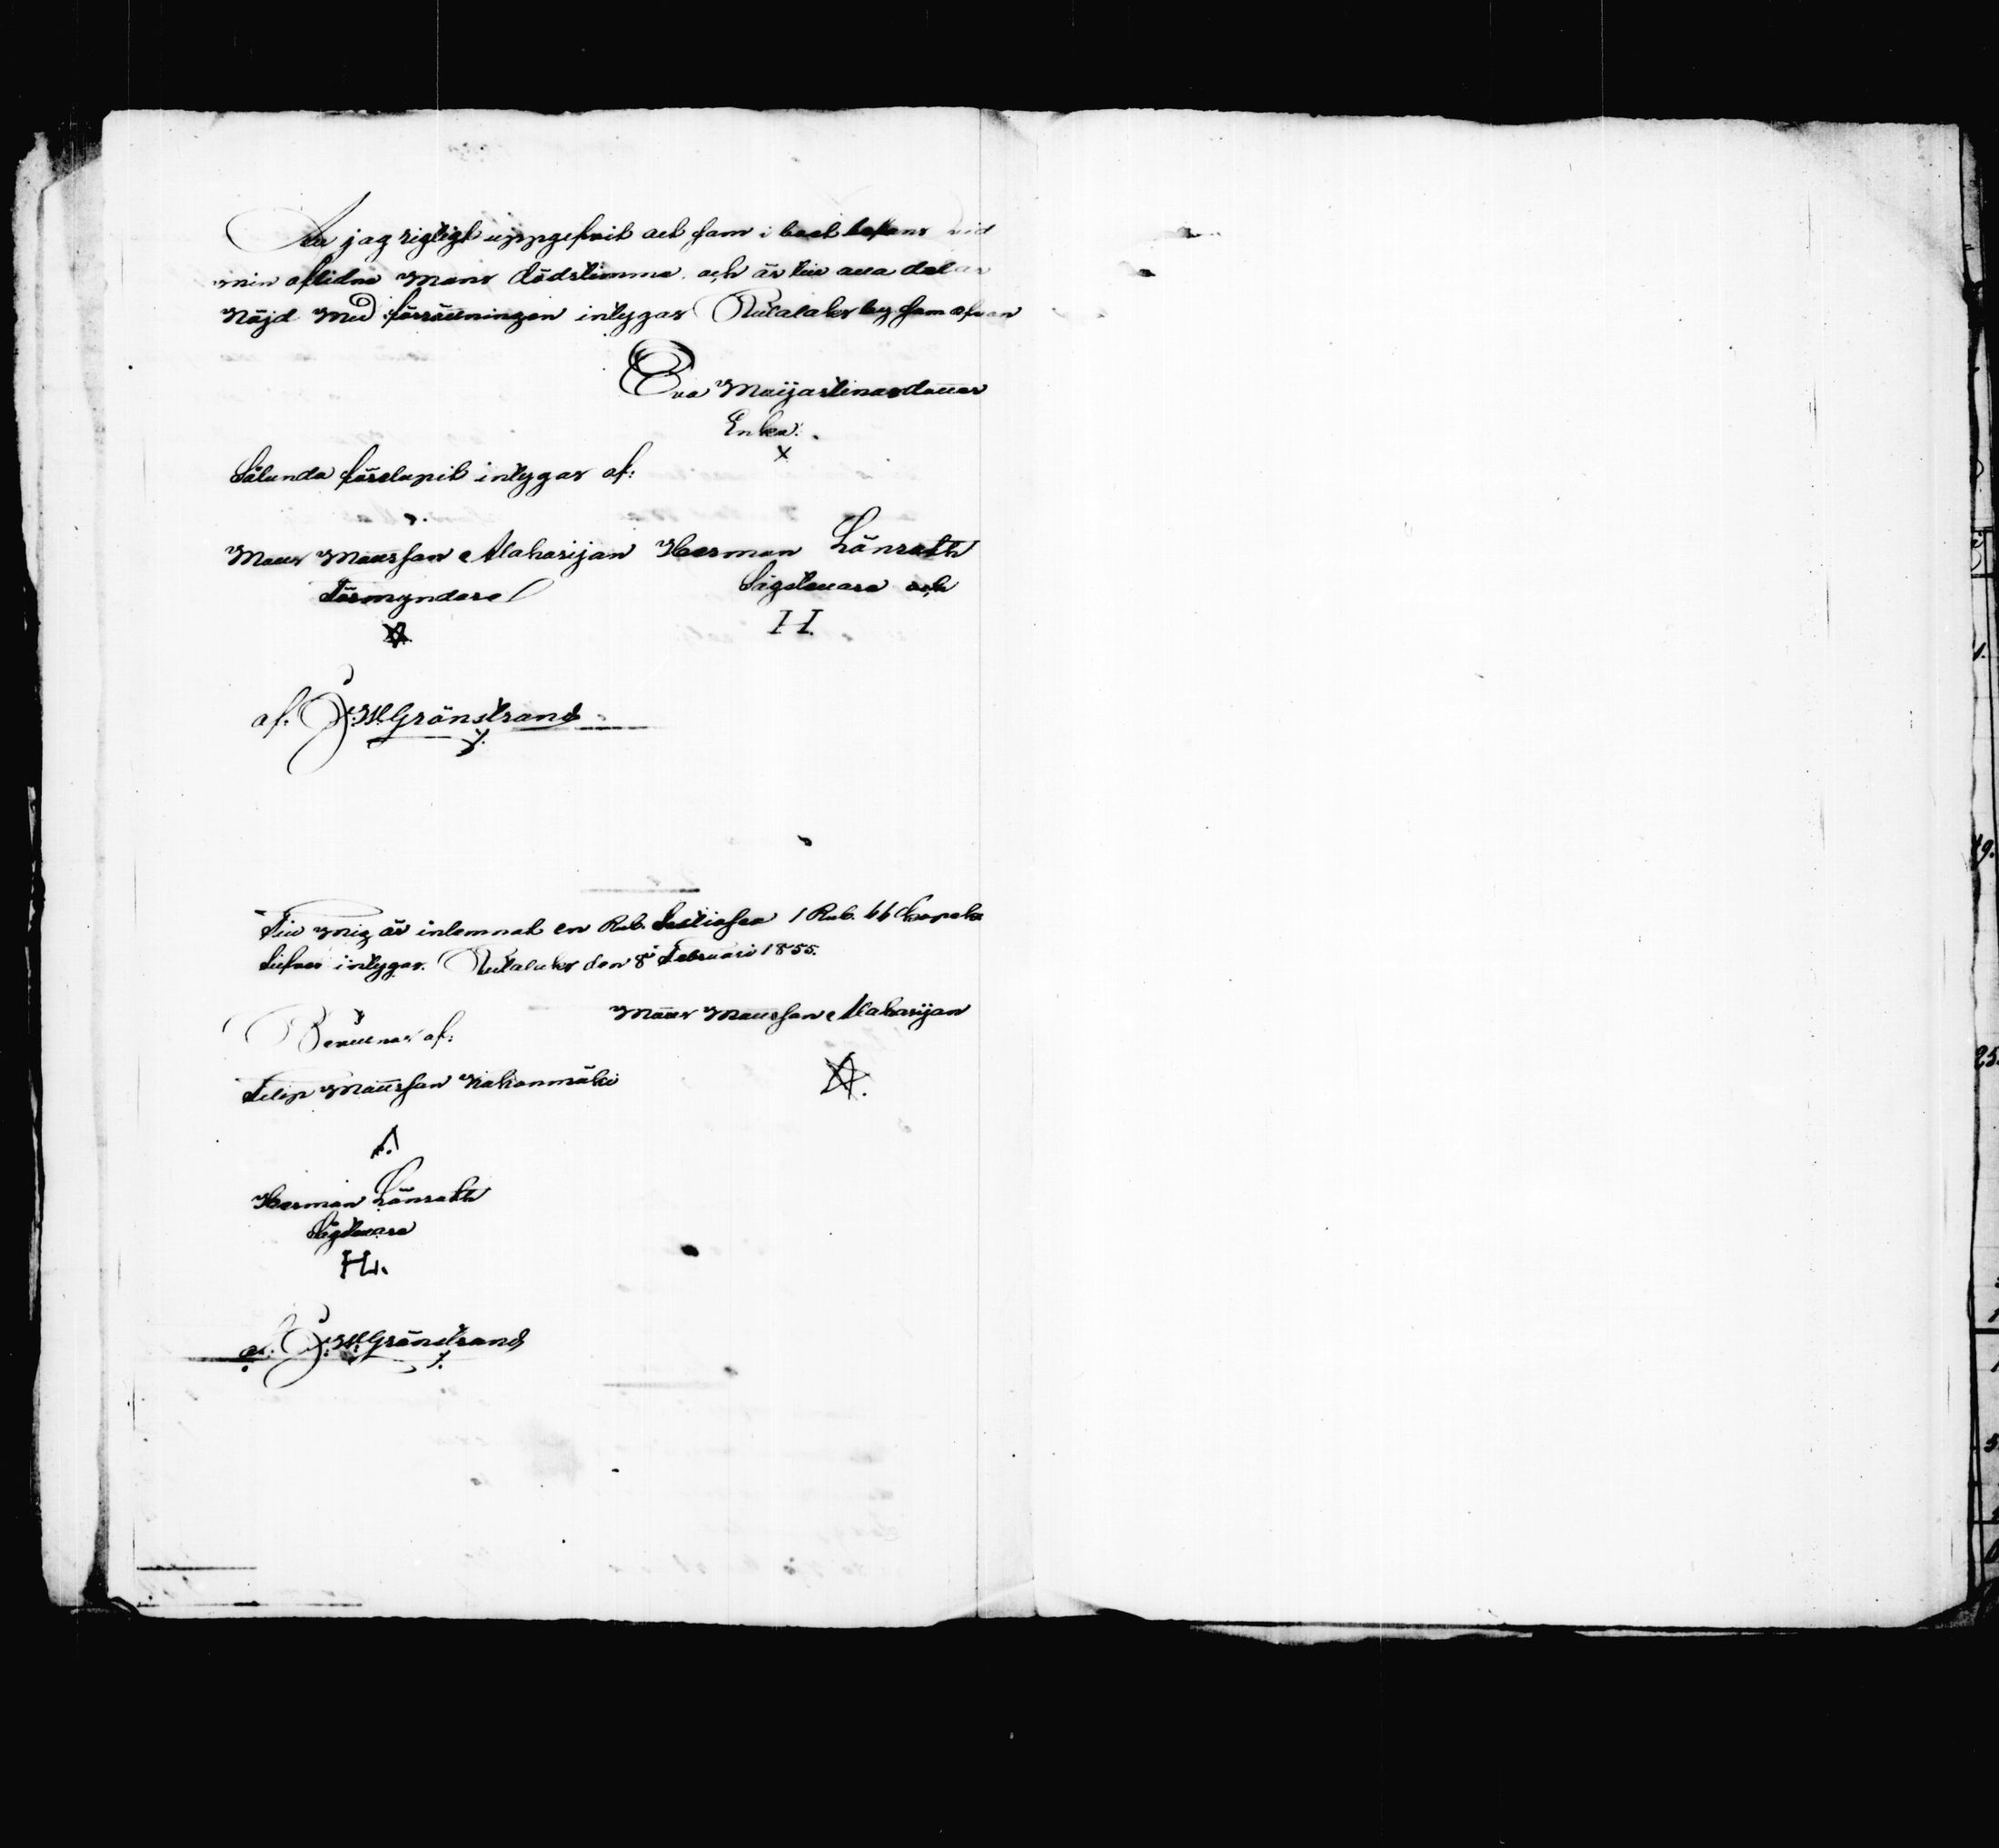 Att jag rigtigt uppgefvit allt som i boet befans vid
min aflidne Mans dödstimma, och är till alla delar
Nöjd Med förrättningen intygar Rutalaks by som ofvan
Eva Maijastinasdotter
Enka.
X
Sålunda förelupit intygar af:
Matts Mattsson Alaharijan Herman Lönroth
Förmyndare Sigstware och
H.
af. J. W. Grönstrand
Till Mig är inlemnat en Rub. 1 Rub. 66 Kopek
Silfver intygar. Rutalaks den 8 Februari 1855.
Matts Mattsson Alaharijan
Bevittnas af:
Filip Mattsson Kiakanmäki
Herman Lönroth
H.
af. J. W. Grönstrand